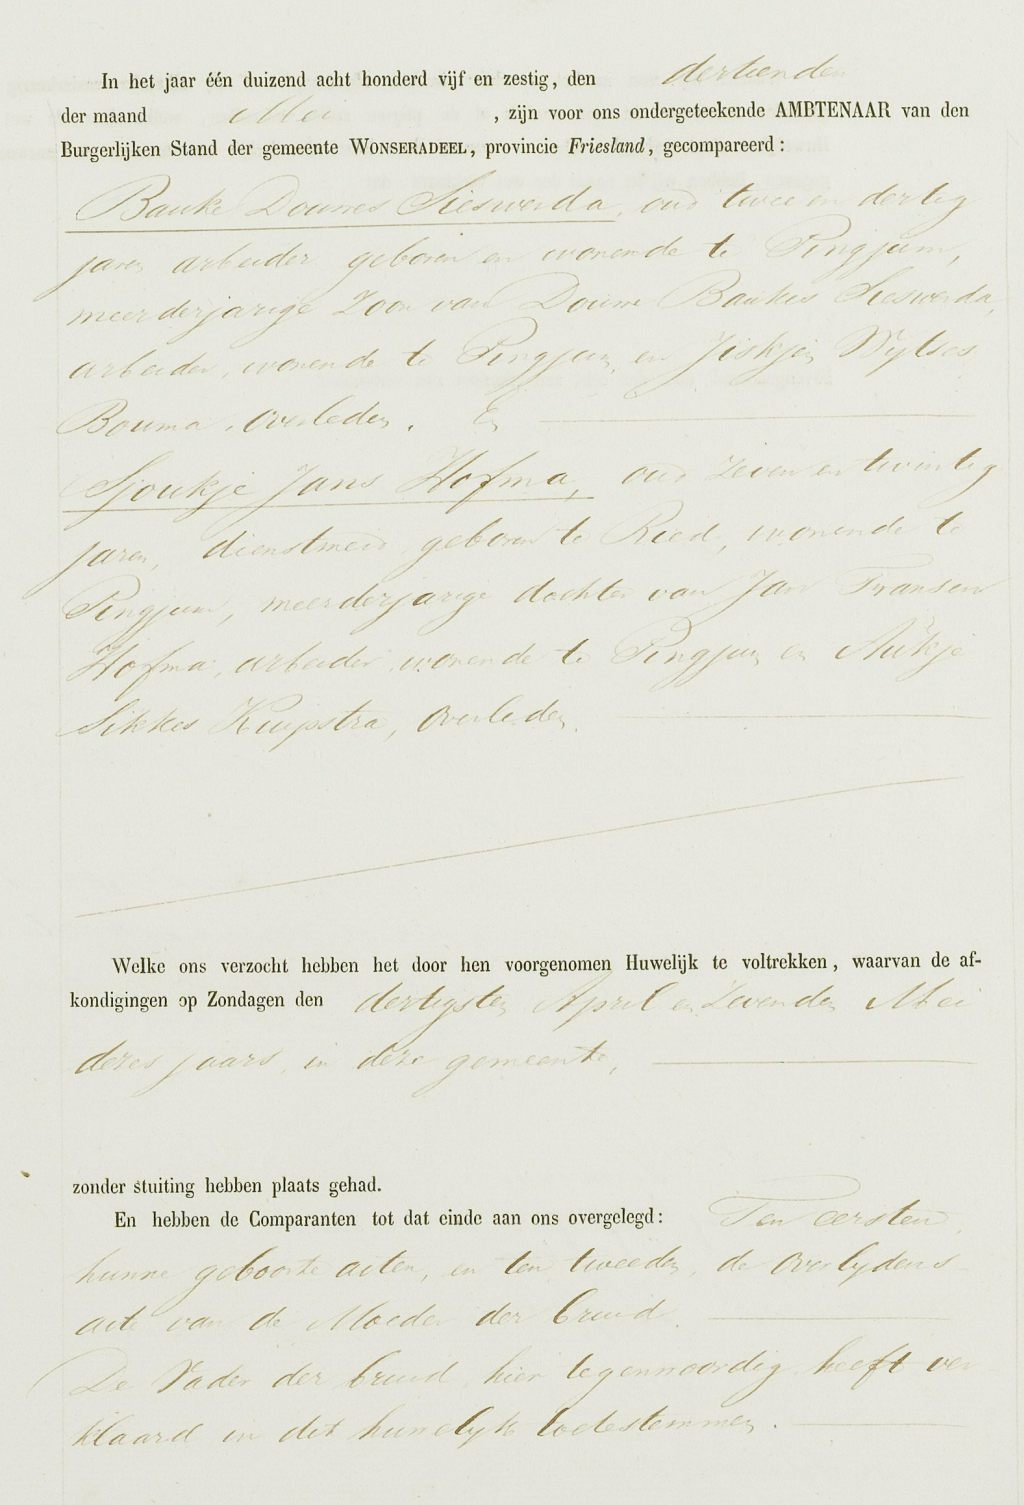 In het jaar één duizend acht honderd vijf en zestig, den dertienden
der maand Mei , zijn voor ons ondergeteekende AMBTENAAR van den
Burgerlijken Stand der gemeente WONSERADEEL, provincie Friesland, gecompareerd:
Bauke Douwes Sieswerda, oud twee en dertig
jaren arbeider geboren en wonende te Pingjum,
meerderjarige Zoon van Douwe Baukes Sieswerda,
arbeider, wonende te Pingjum, en Jiskjen Wytses
Bouma, overleden. En
Sjoukje Jans Hofma, oud zeven en twintig
jaren, dienstmeid, geboren te Ried, wonende te
Pingjum, meerderjarige dochter van Jan Fransen
Hofma, arbeider, wonende te Pingjum en Aukje
Sikkes Kuipstra, overleden.
Welke ons verzocht hebben het door hen voorgenomen Huwelijk te voltrekken, waarvan de af-
kondigingen op Zondagen den dertigsten April en Zevenden Mei
dezes jaars, in deze gemeente,
zonder stuiting hebben plaats gehad.
En hebben de Comparanten tot dat einde aan ons overgelegd: Ten eersten,
hunne geboorte acten, en ten tweeden, de overlydens
acte van de Moeder der bruid.
De Vader der bruid, hier tegenwoordig, heeft ver
klaard in dit huwelyk toetestemmen.